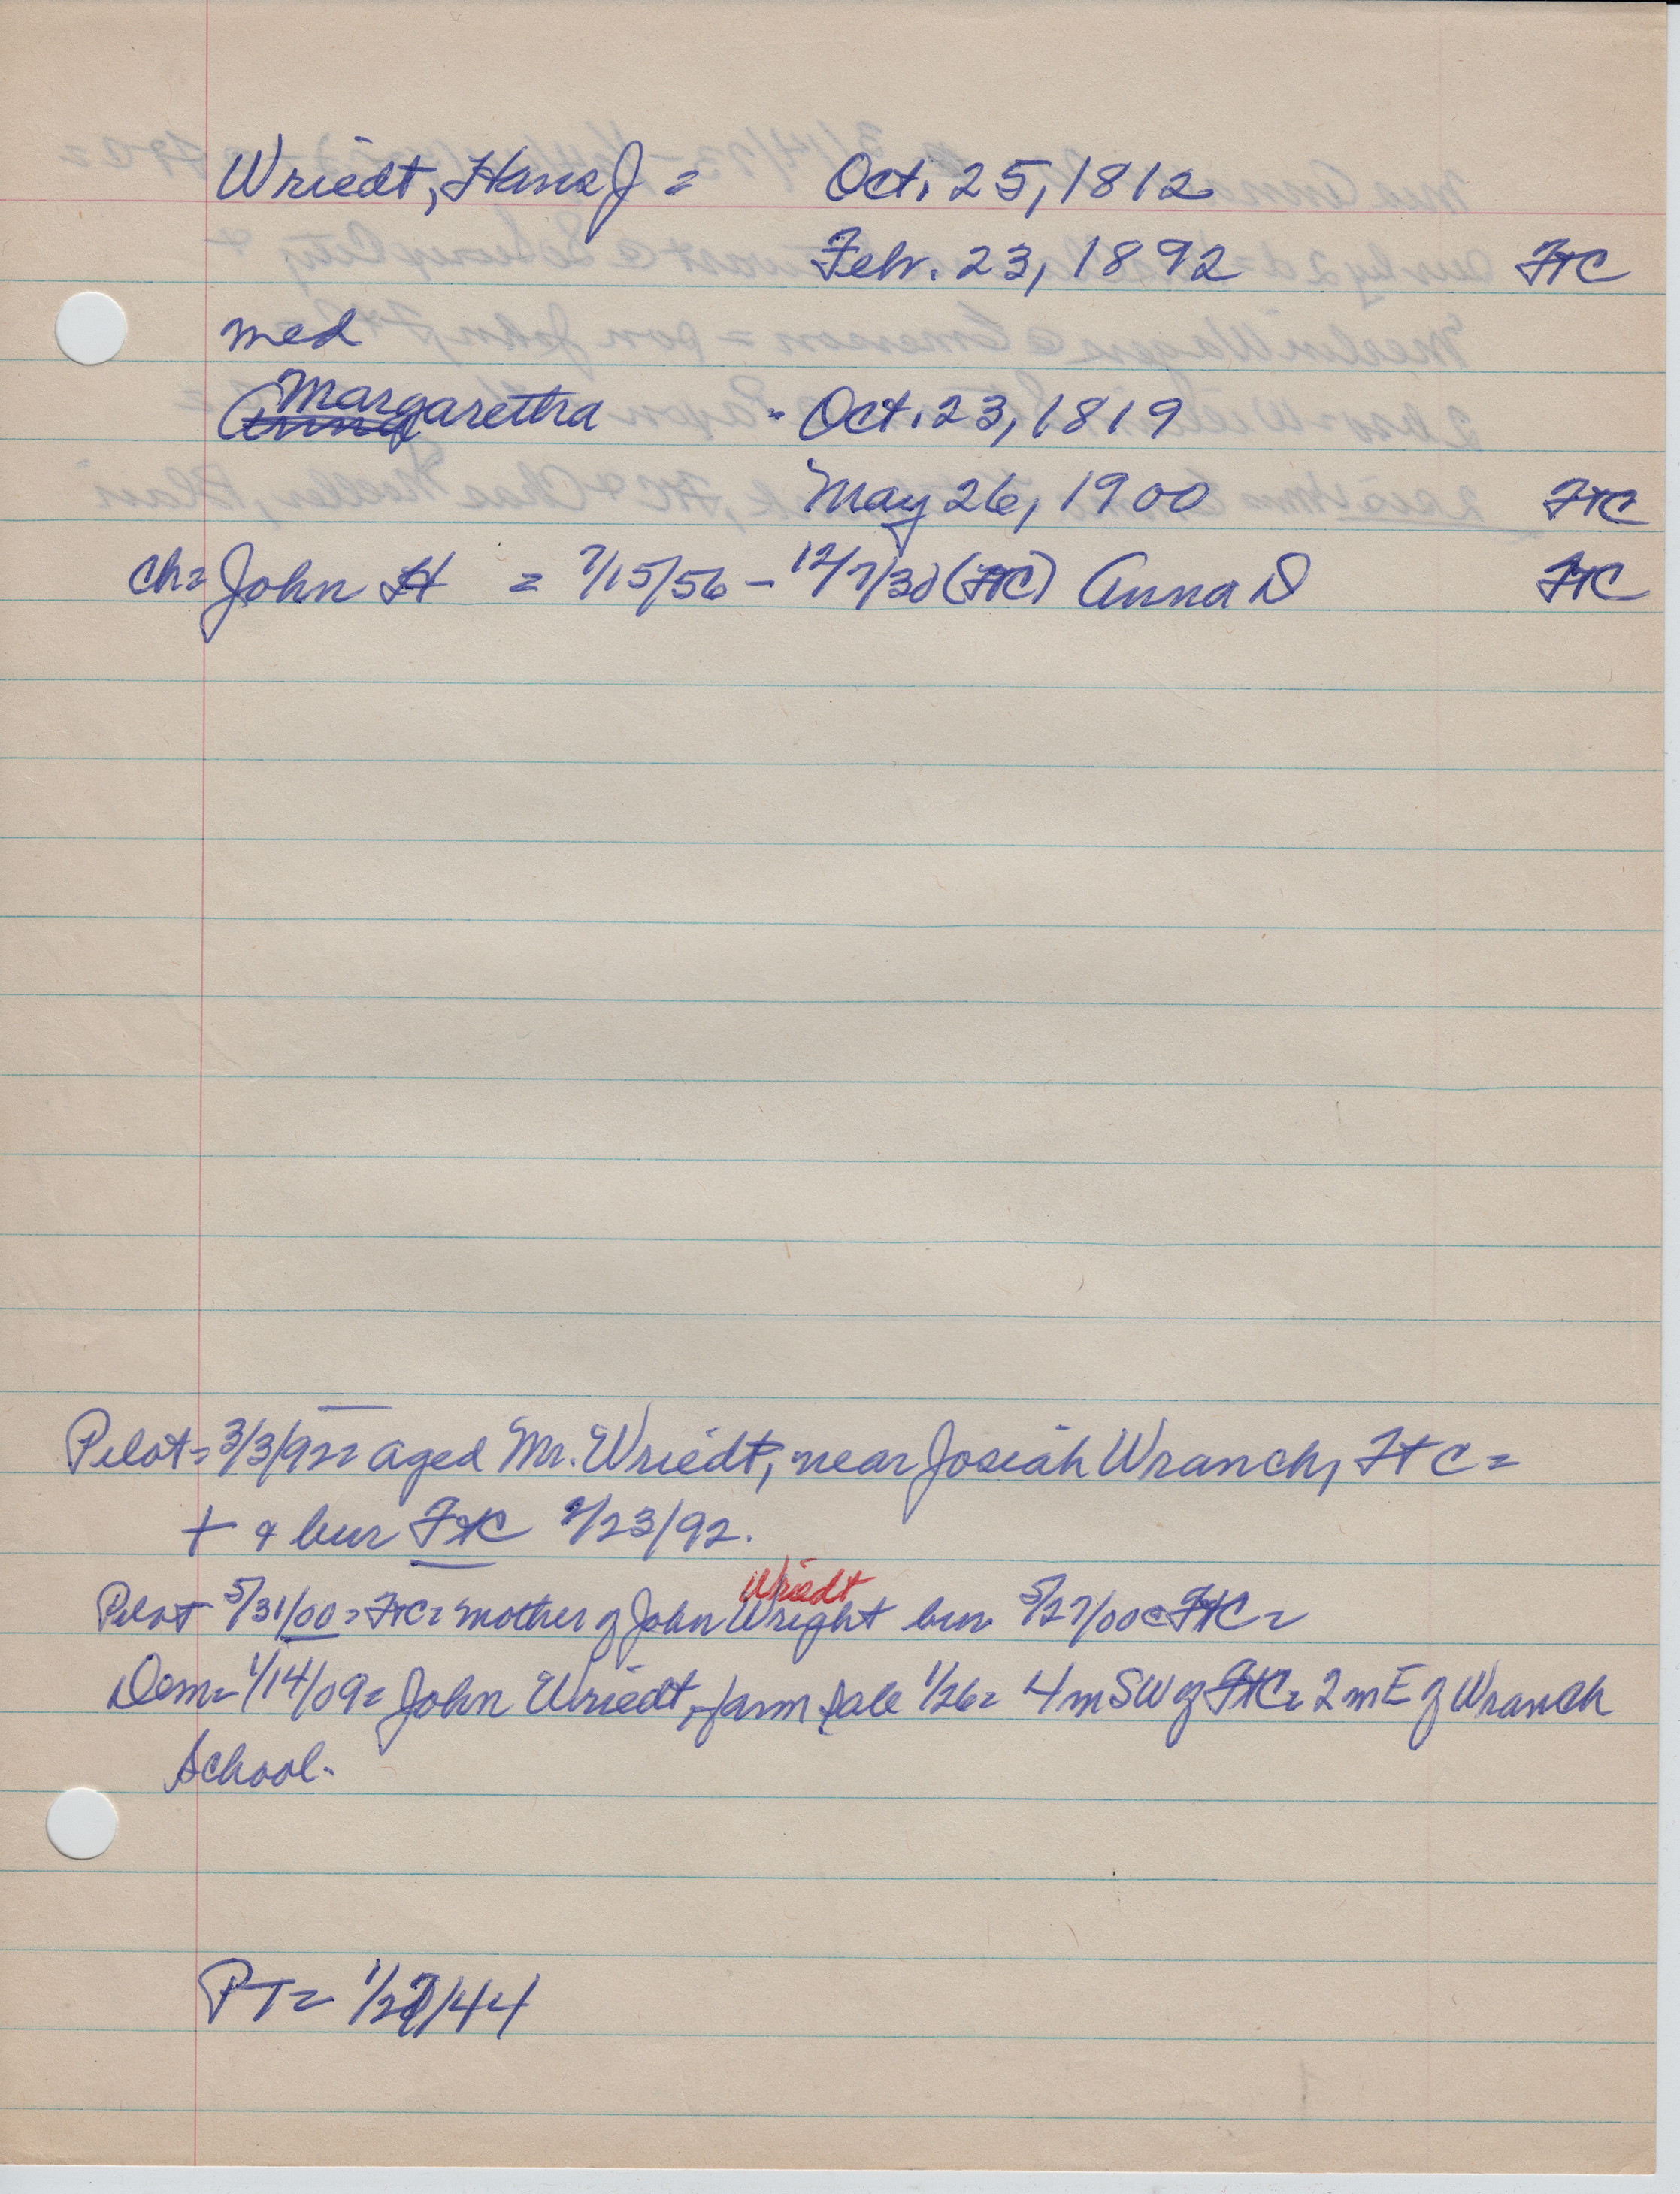 Wriedt, Hans J = Oct. 25, 1812
Febr. 23, 1892 FtC
med
Margaretha - Oct. 23, 1819
May 26, 1900 FtC
ch= John H = 7/15/56 - 12/7/30 (FtC) Anna D FtC
Pilot= 3/3/92= aged Mr. Wriedt, near Josiah Wranch, FtC =
+ & bur FtC 2/23/92.
Wriedt
Pilot 5/31/00= FtC= mother of John Wright bur 5/27/00 @ FtC =
Dem= 1/14/09= John Wriedt, farm sale 1/26= 4 m SW of FtC= 2 m E of Wranch
School.
PT= 1/27/44